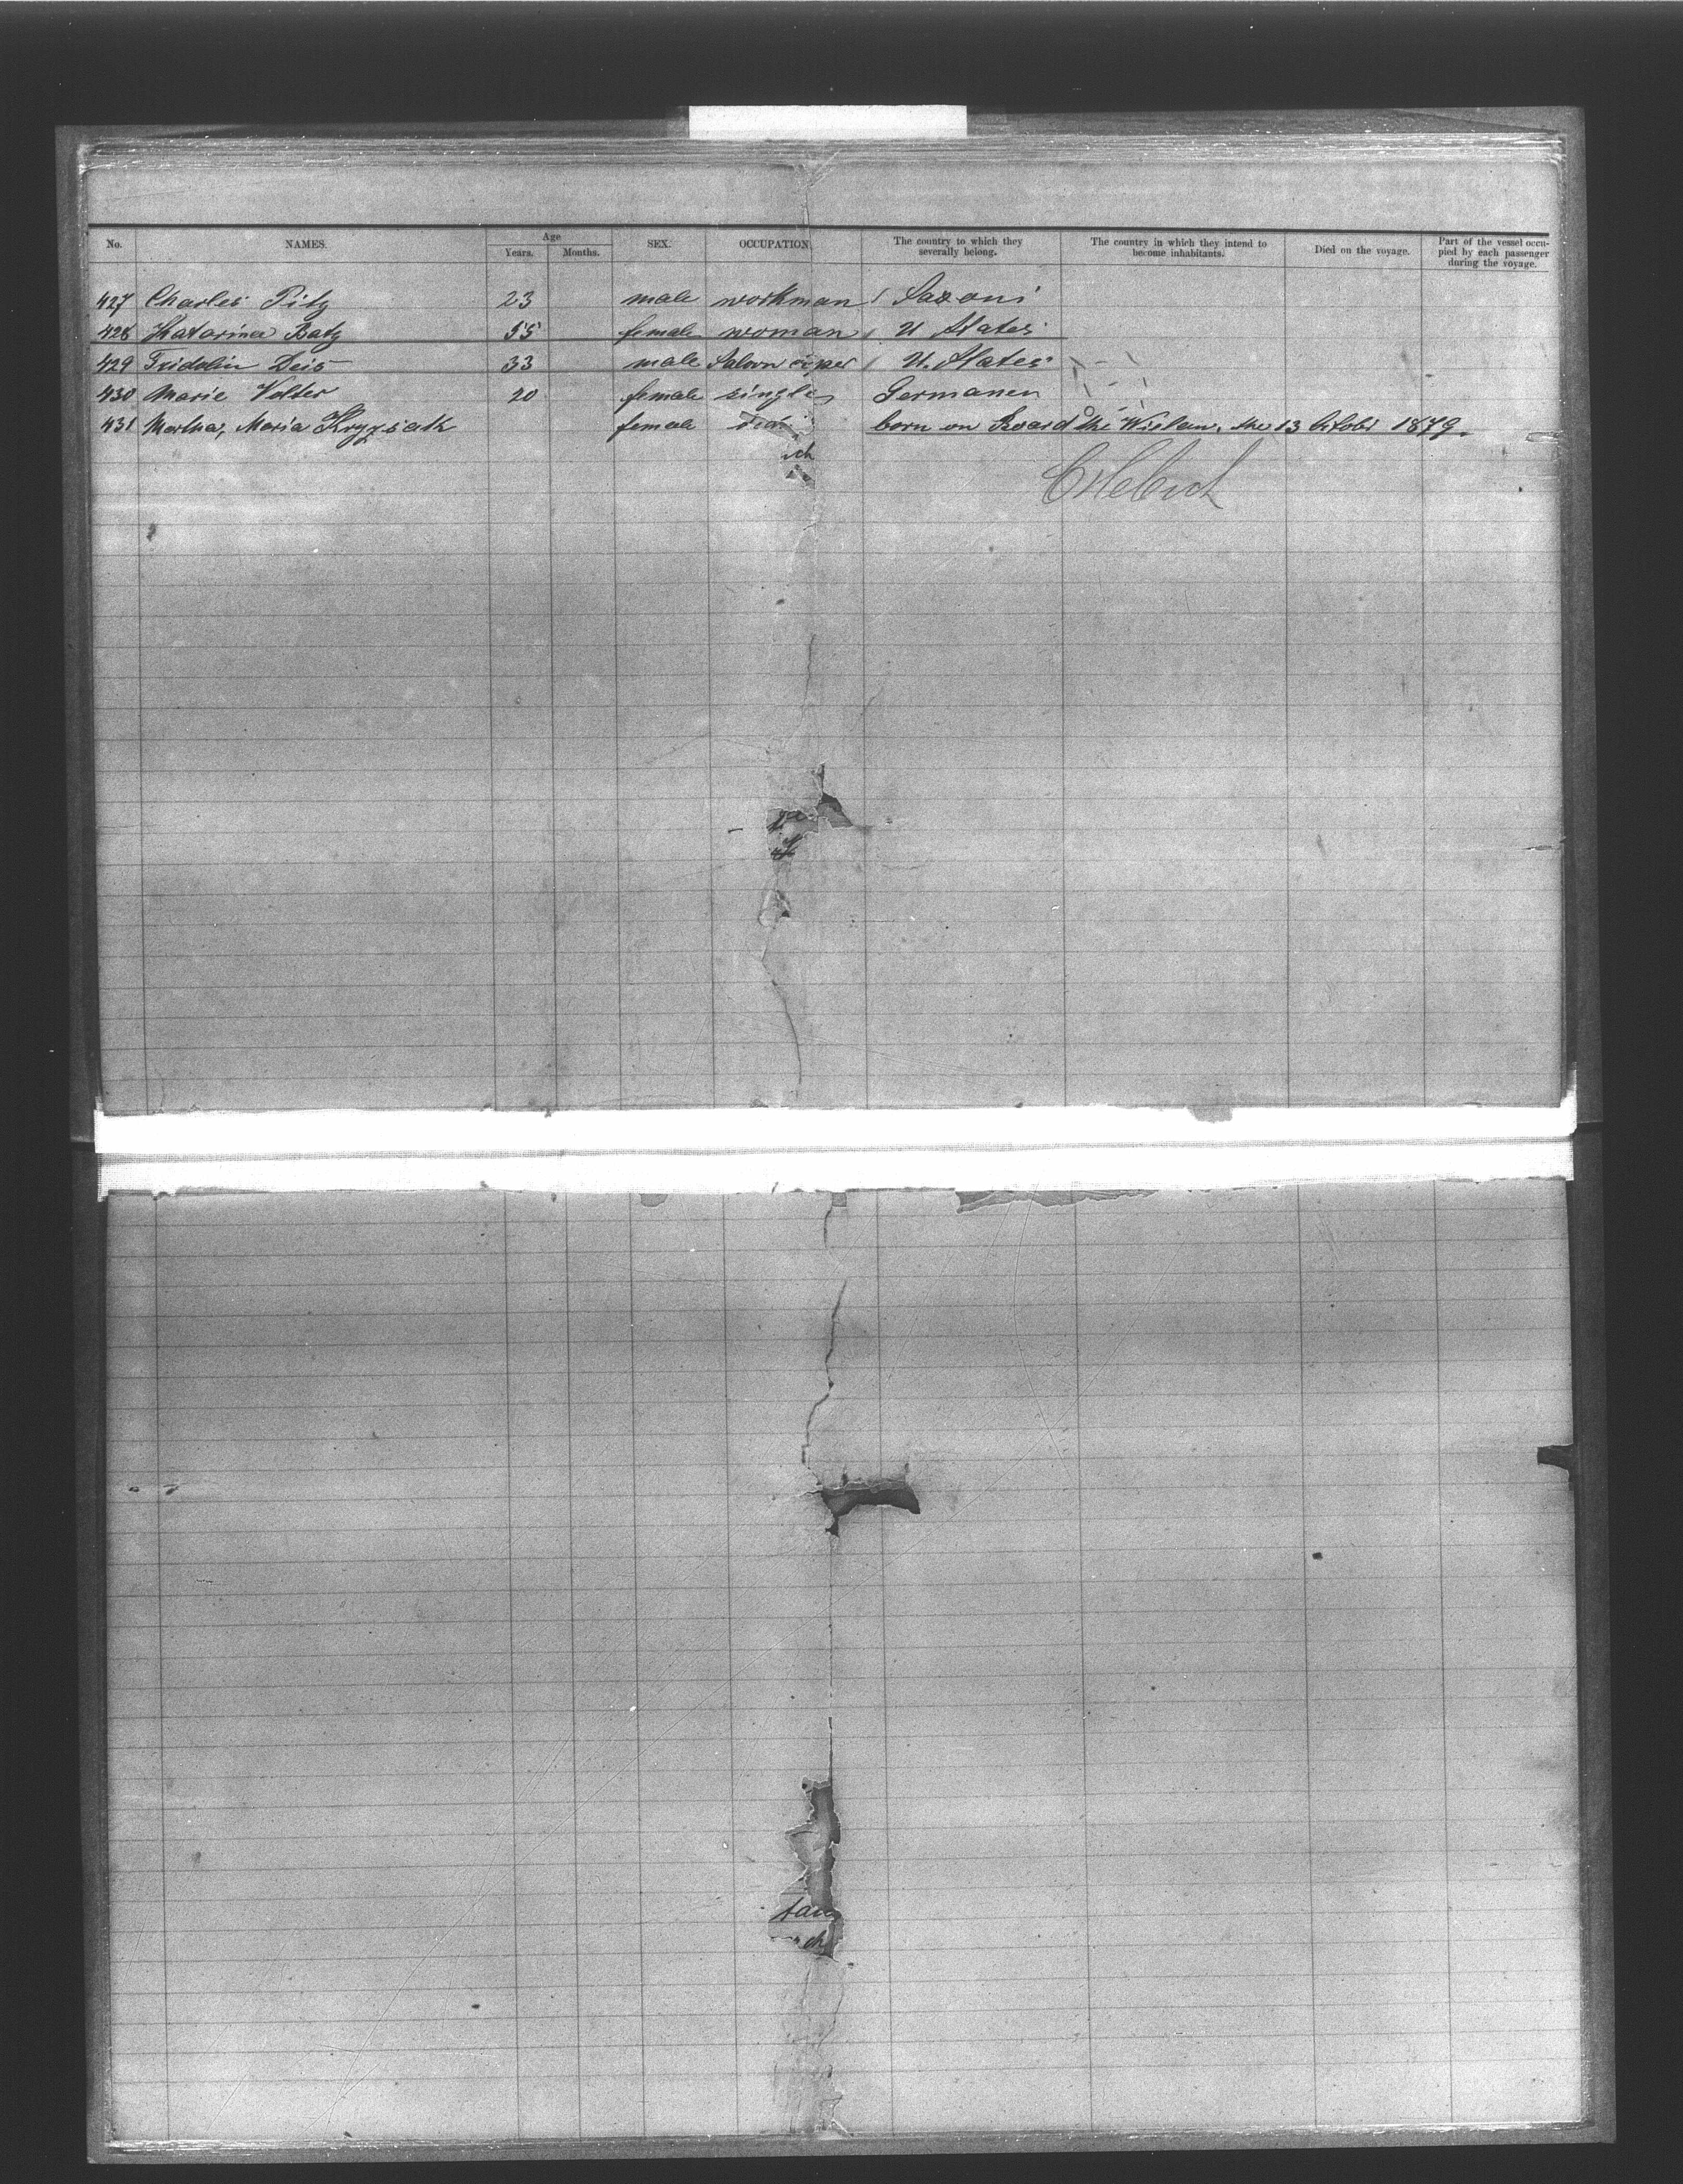 No. NAMES. Age Years. Months. SEX. OCCUPATION The country to which they severally belong. The country in which they intend to become inhabitants. Died on the voyage. Part of the vessel occupied by each passenger during the voyage.
427 Charles Pitz 23 male workman Saxoni
428 Katarina Batz 55 female woman U States
429 Fridolin Deis 33 male Saloon U. States
430 Marie Volter 20 female single Germanen
431 Martha, Maria Kryzsiath female born on Board the Wieland, the 13 October 1879.
ch
tau
ch